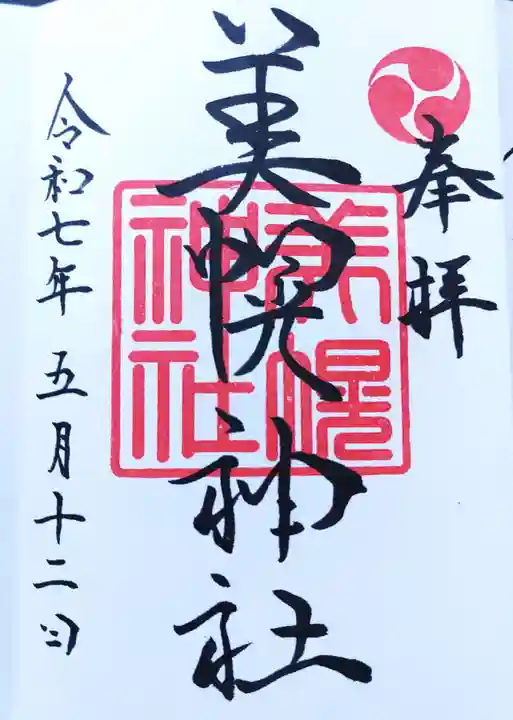 奉拝
美幌神社
美幌神社
令和七年 五月十二日